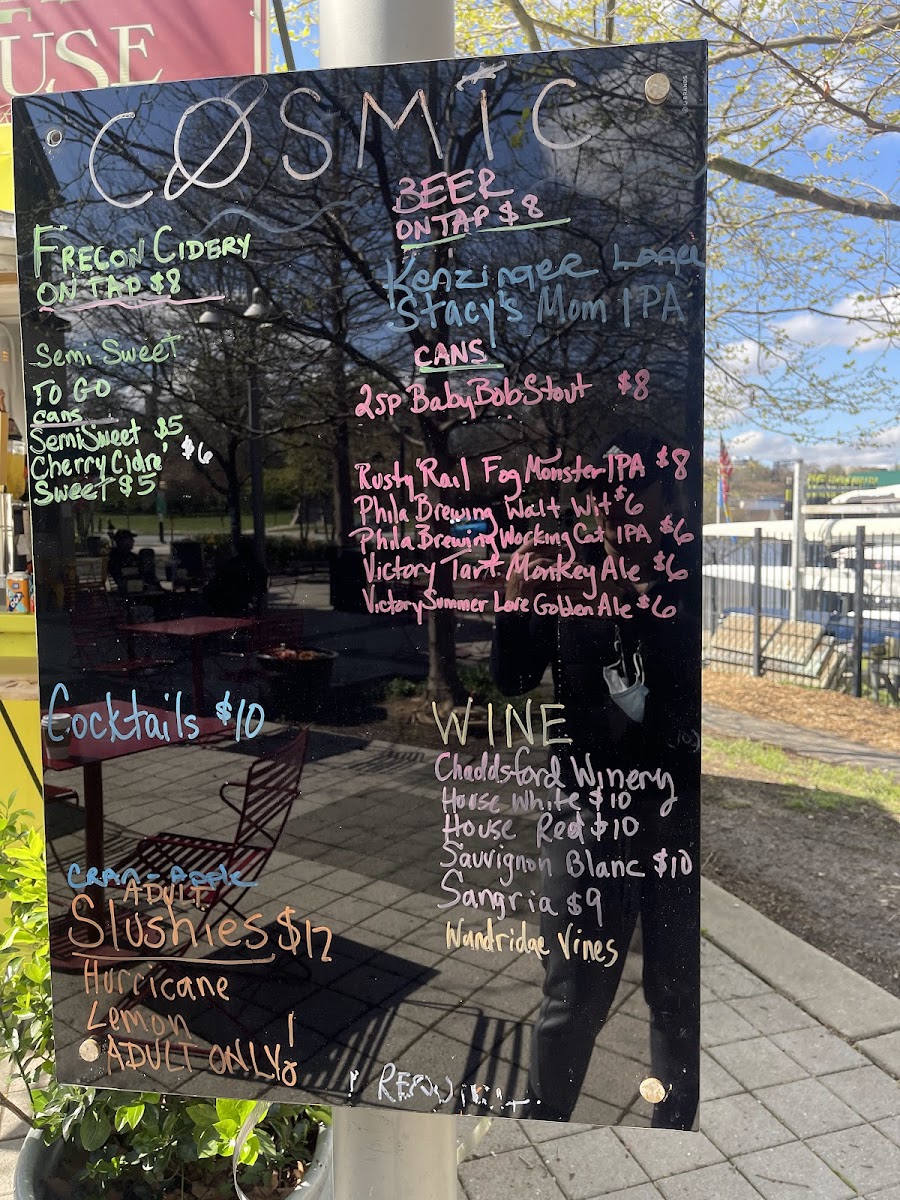 USE
COSMIC
FRECON CIDERY
ON TAP $8
Semi Sweet
TO GO
cans
SemiSweet $5
Cherry Cidre $6
Sweet $5
BEER
ON TAP $8
Kenzinger Lager
Stacy's Mom IPA
CANS
2sp Baby Bob Stout $8
Rusty Rail Fog Monster IPA $8
Phila Brewing Walt Wit $6
Phila Brewing Working Cat IPA $6
Victory Tart Monkey Ale $6
Victory Summer Love Golden Ale $6
Cocktails $10
CRAN-APPLE
ADULT
Slushies $12
Hurricane
Lemon
ADULT ONLY!
WINE
Chaddsford Winery
House White $10
House Red $10
Sauvignon Blanc $10
Sangria $9
Wandridge Vines